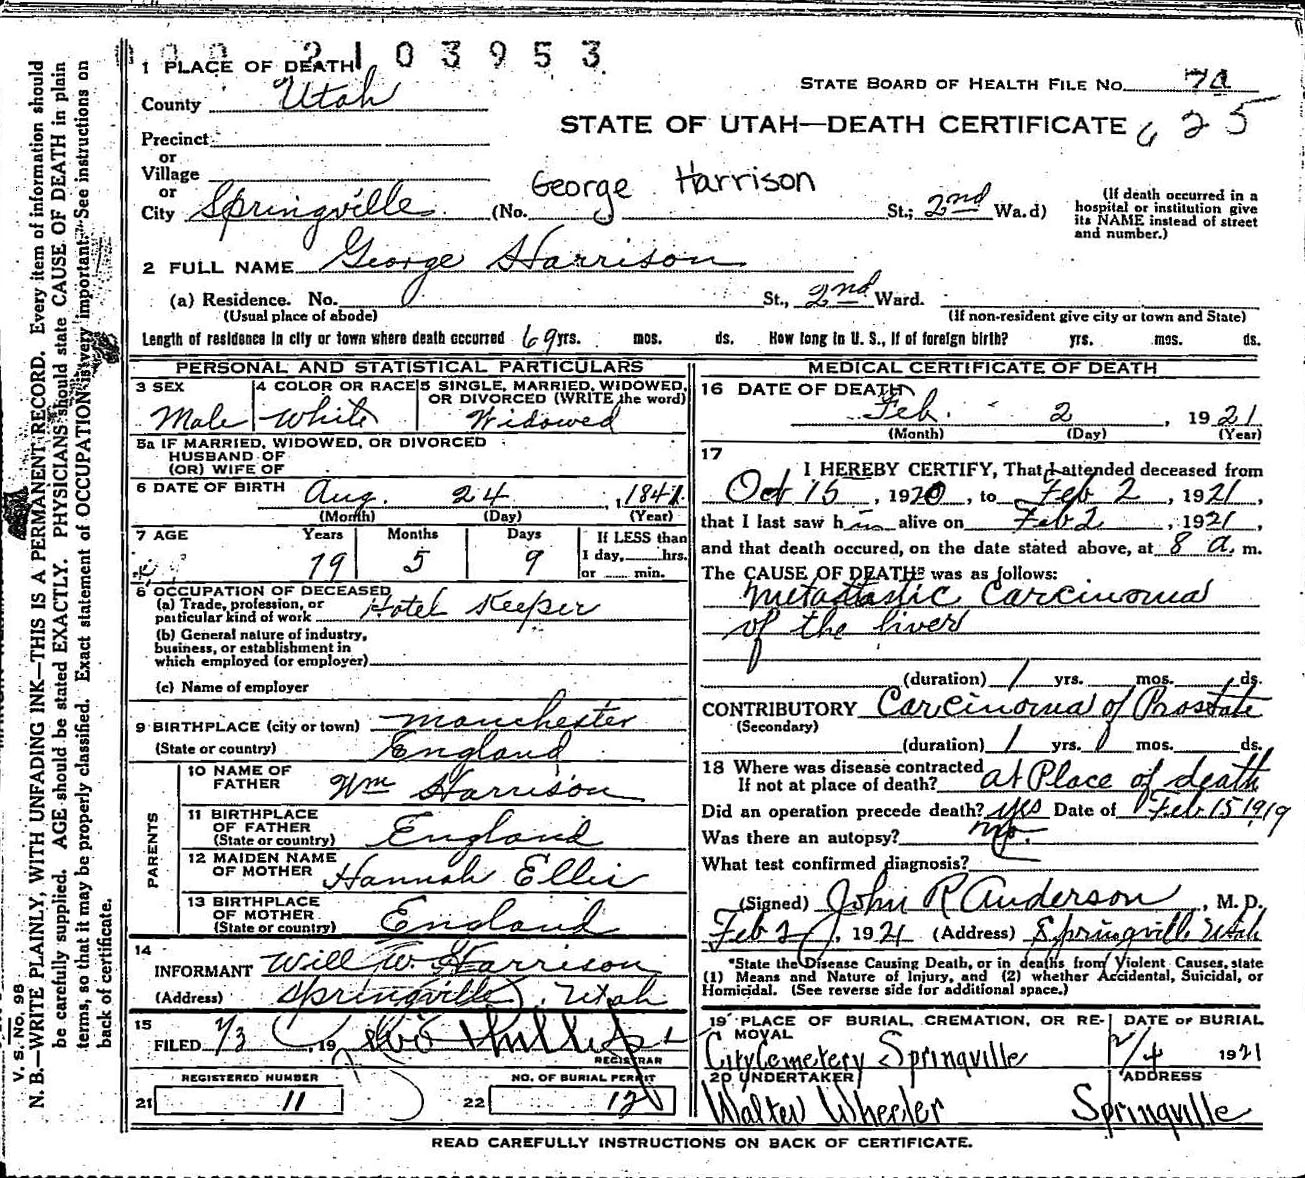 2103953
1 PLACE OF DEATH
STATE BOARD OF HEALTH FILE NO. 74
County Utah
STATE OF UTAH—DEATH CERTIFICATE 625
Precinct
or
Village
or
George Harrison
City Springville (No. St.; 2nd Wa.d)
(If death occurred in a hospital or institution give its NAME instead of street and number.)
2 FULL NAME George Harrison
(a) Residence. No. St., 2nd Ward.
(Usual place of abode) (If non-resident give city or town and State)
Length of residence in city or town where death occurred 69 yrs. mos. ds. How long in U. S., if of foreign birth? yrs. mos. ds.
PERSONAL AND STATISTICAL PARTICULARS
3 SEX Male
4 COLOR OR RACE White
5 SINGLE, MARRIED, WIDOWED, OR DIVORCED (WRITE the word) Widowed
5a IF MARRIED, WIDOWED, OR DIVORCED
HUSBAND OF
(OR) WIFE OF
6 DATE OF BIRTH Aug. 24, 1841
(Month) (Day) (Year)
7 AGE Years Months Days If LESS than
79 5 9 1 day, hrs.
or min.
8 OCCUPATION OF DECEASED
(a) Trade, profession, or
particular kind of work Hotel Keeper
(b) General nature of industry,
business, or establishment in
which employed (or employer)
(c) Name of employer
9 BIRTHPLACE (city or town) Manchester
(State or country) England
PARENTS
10 NAME OF FATHER Wm Harrison
11 BIRTHPLACE OF FATHER (State or country) England
12 MAIDEN NAME OF MOTHER Hannah Ellis
13 BIRTHPLACE OF MOTHER (State or country) England
14
INFORMANT Will W. Harrison
(Address) Springville, Utah
15
FILED 2/3, 19
REGISTRAR
REGISTERED NUMBER NO. OF BURIAL PERMIT
21 11 22 12
MEDICAL CERTIFICATE OF DEATH
16 DATE OF DEATH
Feb. 2, 1921
(Month) (Day) (Year)
17
I HEREBY CERTIFY, That I attended deceased from
Oct 15, 1920, to Feb 2, 1921,
that I last saw him alive on Feb 2, 1921,
and that death occured, on the date stated above, at 8 a. m.
The CAUSE OF DEATH* was as follows:
Metastastic Carcinoma
of the liver
(duration) 1 yrs. mos. ds.
CONTRIBUTORY Carcinoma of Prostate
(Secondary)
(duration) 1 yrs. mos. ds.
18 Where was disease contracted
If not at place of death? at Place of death
Did an operation precede death? yes Date of Feb 15 1919
Was there an autopsy? no
What test confirmed diagnosis?
(Signed) John R Anderson, M. D.
Feb 2, 1921 (Address) Springville Utah
*State the Disease Causing Death, or in deaths from Violent Causes, state
(1) Means and Nature of Injury, and (2) whether Accidental, Suicidal, or
Homicidal. (See reverse side for additional space.)
19 PLACE OF BURIAL, CREMATION, OR REMOVAL DATE OF BURIAL
City Cemetery Springville 2/4 1921
20 UNDERTAKER ADDRESS
Walter Wheeler Springville
READ CAREFULLY INSTRUCTIONS ON BACK OF CERTIFICATE.
V. S. No. 98
N. B.—WRITE PLAINLY, WITH UNFADING INK—THIS IS A PERMANENT RECORD. Every item of information should
be carefully supplied. AGE should be stated EXACTLY. PHYSICIANS should state CAUSE OF DEATH in plain
terms, so that it may be properly classified. Exact statement of OCCUPATION is very important. See instructions on
back of certificate.